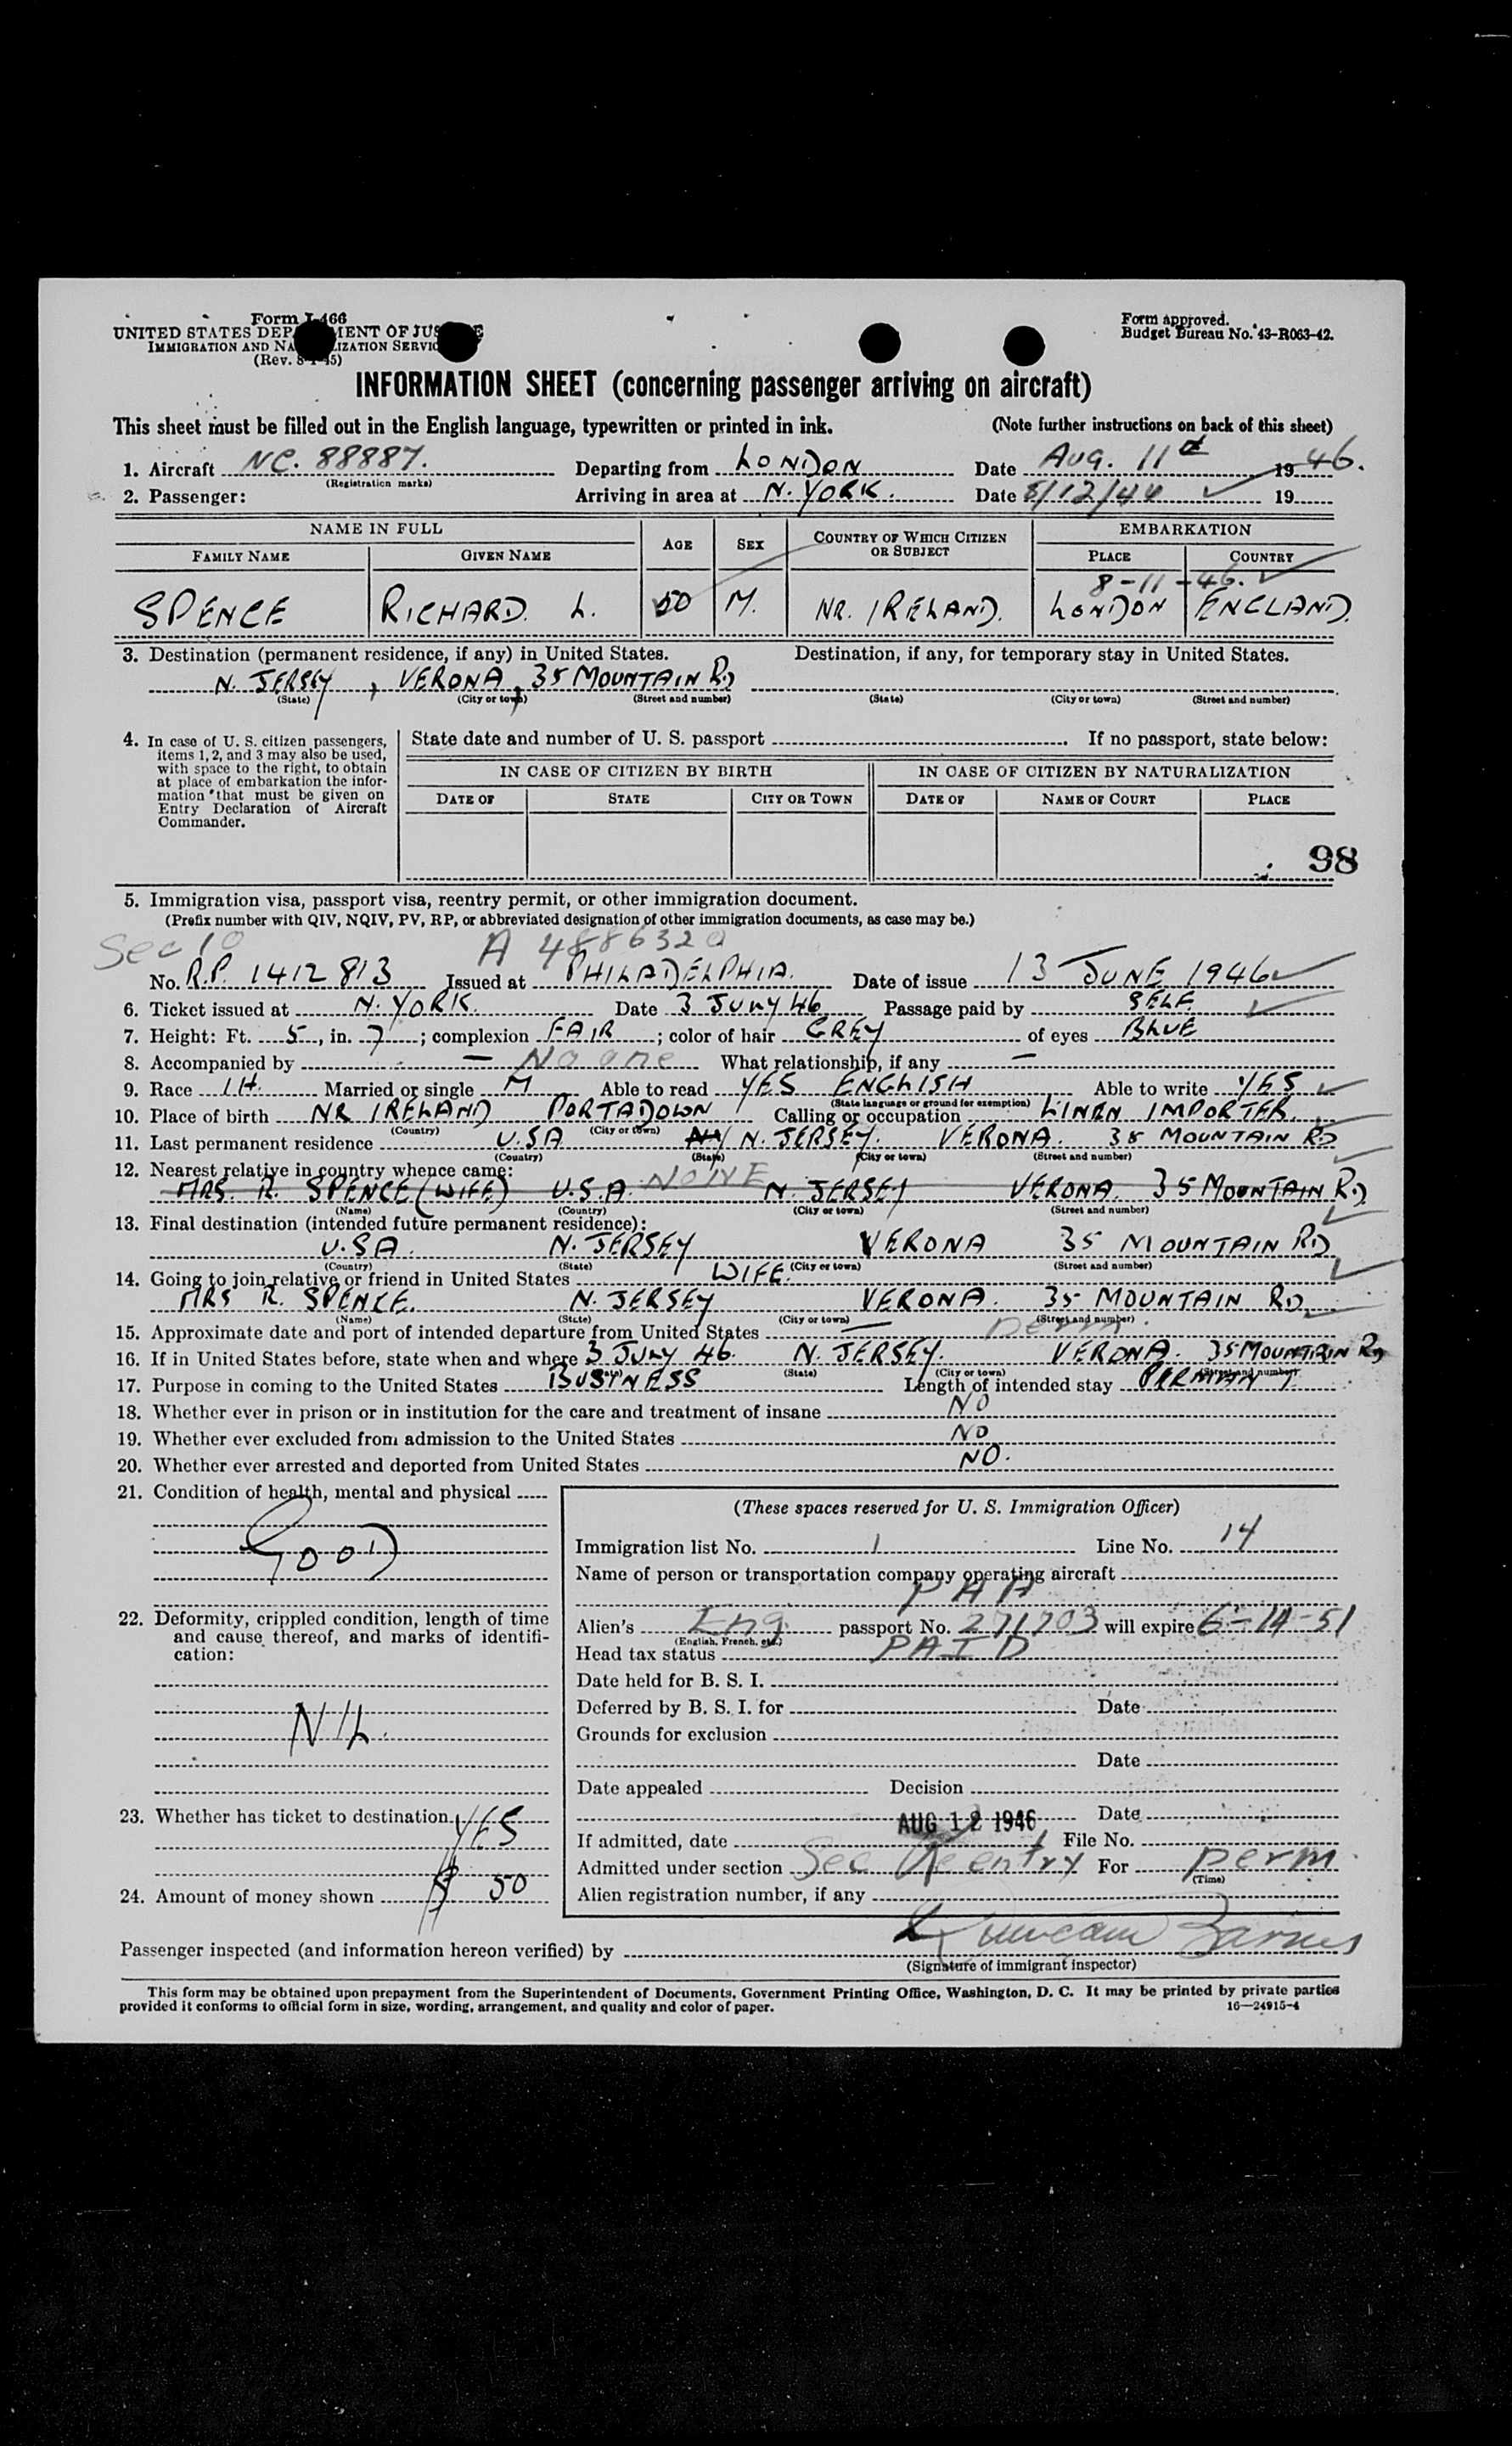 Form I-466
UNITED STATES DEPARTMENT OF JUSTICE
IMMIGRATION AND NATURALIZATION SERVICE
(Rev. 8-1-45)
Form approved.
Budget Bureau No. 43-R063-42.
INFORMATION SHEET (concerning passenger arriving on aircraft)
This sheet must be filled out in the English language, typewritten or printed in ink. (Note further instructions on back of this sheet)
1. Aircraft NC. 88887. Departing from LONDON Date AUG. 11th 1946.
(Registration marks)
2. Passenger: Arriving in area at N. YORK. Date 8/12/46 19
NAME IN FULL AGE SEX COUNTRY OF WHICH CITIZEN OR SUBJECT EMBARKATION
FAMILY NAME GIVEN NAME PLACE COUNTRY
8-11-46.
SPENCE RICHARD. L. 50 M. NR. IRELAND. LONDON ENGLAND.
3. Destination (permanent residence, if any) in United States. Destination, if any, for temporary stay in United States.
N. JERSEY, VERONA, 35 MOUNTAIN RD
(State) (City or town) (Street and number) (State) (City or town) (Street and number)
4. In case of U. S. citizen passengers, items 1, 2, and 3 may also be used, with space to the right, to obtain at place of embarkation the information that must be given on Entry Declaration of Aircraft Commander.
State date and number of U. S. passport . If no passport, state below:
IN CASE OF CITIZEN BY BIRTH IN CASE OF CITIZEN BY NATURALIZATION
DATE OF STATE CITY OR TOWN DATE OF NAME OF COURT PLACE
98
5. Immigration visa, passport visa, reentry permit, or other immigration document.
(Prefix number with QIV, NQIV, PV, RP, or abbreviated designation of other immigration documents, as case may be.)
Sec 10 A 4886320
No. R.P. 1412813 Issued at PHILADELPHIA. Date of issue 13 JUNE 1946
6. Ticket issued at N. YORK. Date 3 JULY 46 Passage paid by SELF.
7. Height: Ft. 5, in. 7; complexion FAIR; color of hair GREY of eyes BLUE
8. Accompanied by — No one What relationship, if any —
9. Race IH. Married or single M Able to read YES ENGLISH Able to write YES
(State language or ground for exemption)
10. Place of birth NR IRELAND PORTADOWN Calling or occupation LINEN IMPORTER.
(Country) (City or town)
11. Last permanent residence U.S.A N. JERSEY. VERONA. 35 MOUNTAIN RD
(Country) (State) (City or town) (Street and number)
12. Nearest relative in country whence came:
MRS. R. SPENCE (WIFE) U.S.A. NONE N. JERSEY VERONA. 35 MOUNTAIN RD
(Name) (Country) (City or town) (Street and number)
13. Final destination (intended future permanent residence):
U.S.A. N. JERSEY VERONA 35 MOUNTAIN RD
(Country) (State) (City or town) (Street and number)
14. Going to join relative or friend in United States WIFE.
MRS R. SPENCE. N. JERSEY VERONA. 35 MOUNTAIN RD
(Name) (State) (City or town) (Street and number)
15. Approximate date and port of intended departure from United States — perm.
16. If in United States before, state when and where 3 JULY 46. N. JERSEY. VERONA. 35 MOUNTAIN RD
(State) (City or town) (Street and number)
17. Purpose in coming to the United States BUSINESS Length of intended stay
18. Whether ever in prison or in institution for the care and treatment of insane NO
19. Whether ever excluded from admission to the United States NO
20. Whether ever arrested and deported from United States NO.
21. Condition of health, mental and physical
GOOD
22. Deformity, crippled condition, length of time and cause thereof, and marks of identification:
NIL.
23. Whether has ticket to destination YES
24. Amount of money shown $ 50
(These spaces reserved for U. S. Immigration Officer)
Immigration list No. 1 Line No. 14
Name of person or transportation company operating aircraft
PAA
Alien's Eng. passport No. 271703 will expire 6-14-51
(English, French, etc.)
Head tax status PAID
Date held for B. S. I.
Deferred by B. S. I. for Date
Grounds for exclusion
Date
Date appealed Decision
Date
If admitted, date AUG 12 1946 File No.
Admitted under section Sec Reentry For perm.
(Time)
Alien registration number, if any
Passenger inspected (and information hereon verified) by Duncan Barnes
(Signature of immigrant inspector)
This form may be obtained upon prepayment from the Superintendent of Documents, Government Printing Office, Washington, D. C. It may be printed by private parties
provided it conforms to official form in size, wording, arrangement, and quality and color of paper. 16—24915-4